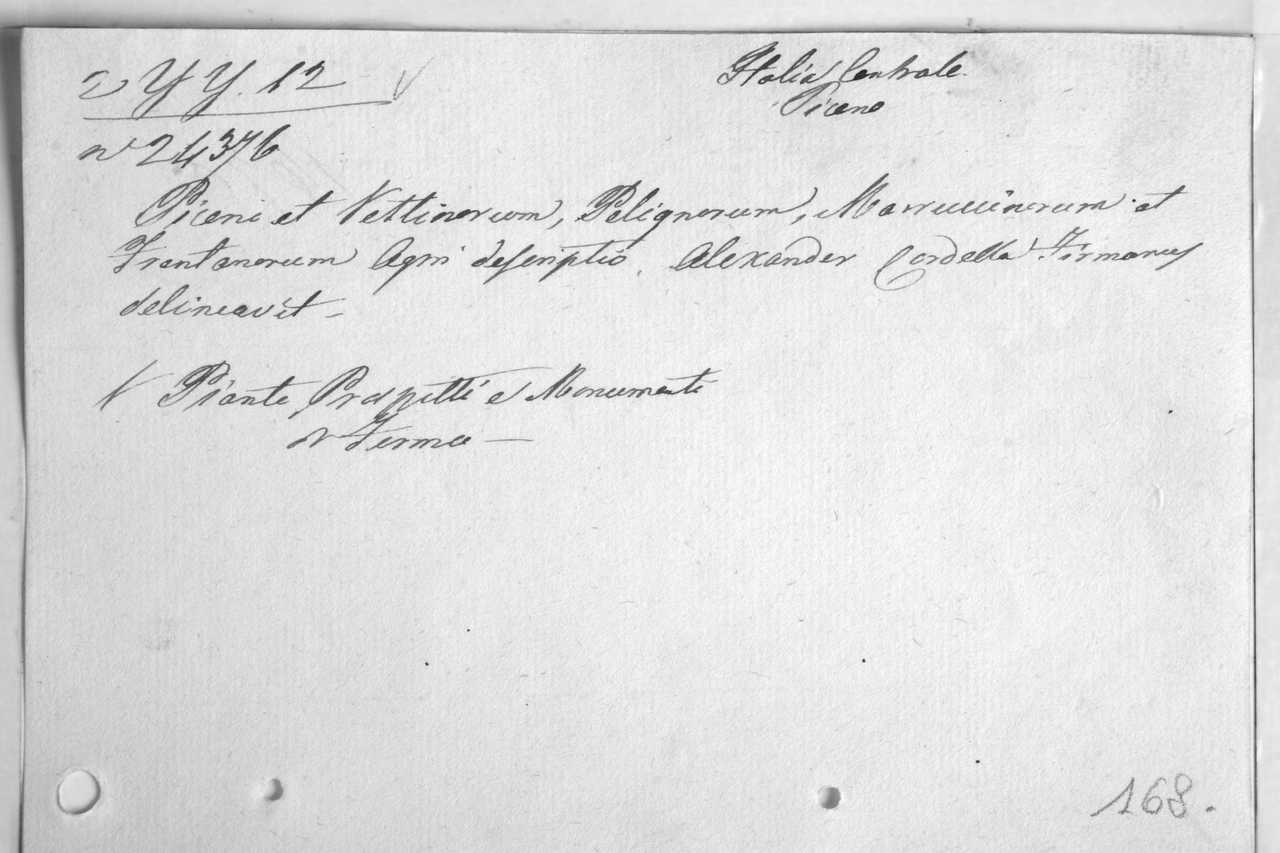 2 Y Y. 12
Italia Centrale.
Piceno
nº 24376
Piceni et Vettinorum, Pelignorum, Marrucinorum et
Frentanorum Agri descriptio. Alexander Cordella Firmanus
delineavit -
V Piante Prospetti e Monumenti
di Fermo -
168.